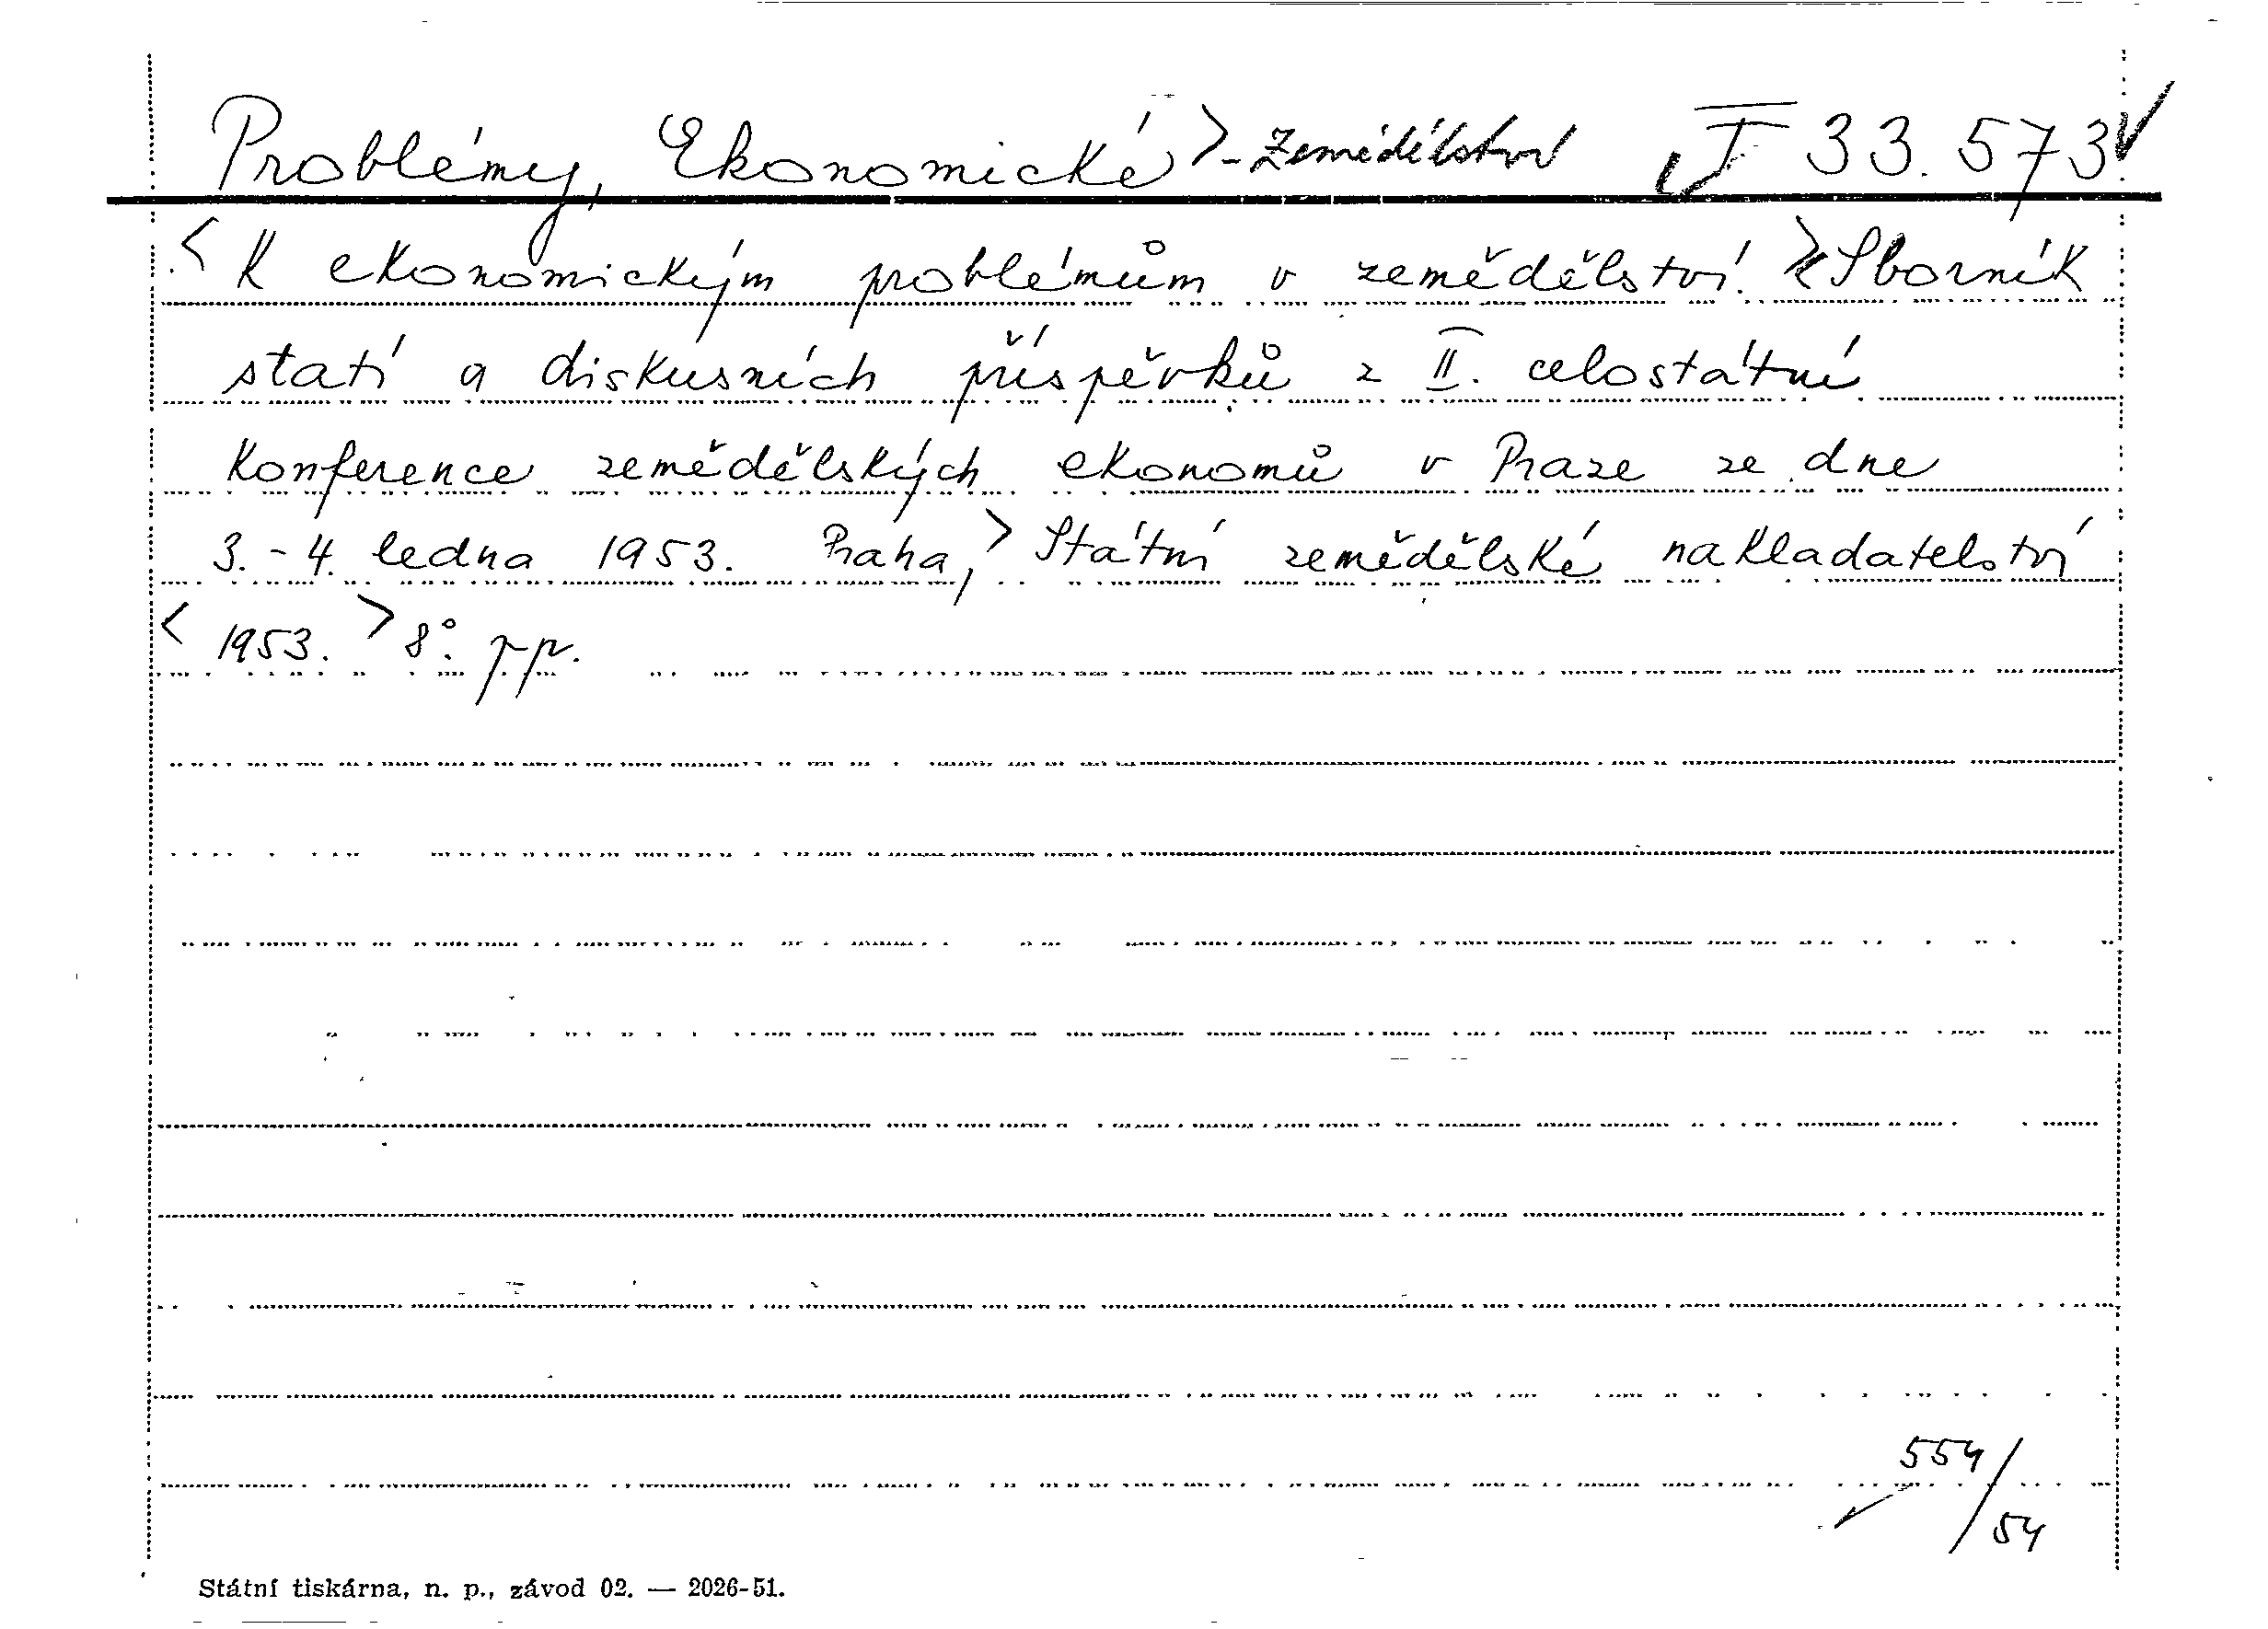 Problémy, Ekonomické > - Zemědělství I 33.573.
< K ekonomickým problémům v zemědělství. > Sborník
statí a diskusních příspěvků z II. celostátní
konference zemědělských ekonomů v Praze ze dne
3. - 4. ledna 1953. Praha, > Státní zemědělské nakladatelství
< 1953. > 8°. p.p.
554/54
Státní tiskárna, n. p., závod 02. — 2026-51.